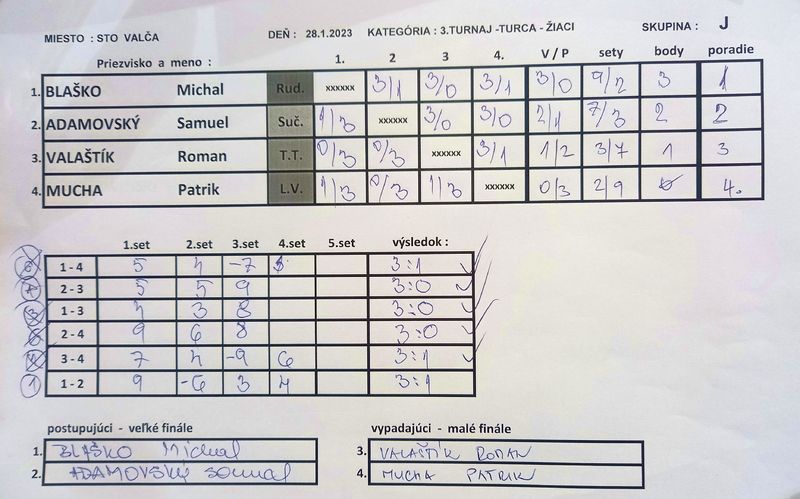 MIESTO : STO VALČA DEŇ : 28.1.2023 KATEGÓRIA : 3.TURNAJ -TURCA - ŽIACI SKUPINA : J
Priezvisko a meno : 1. 2 3 4. V / P sety body poradie
1. BLAŠKO Michal Rud. xxxxxx 3/1 3/0 3/1 3/0 9/2 3 1
2. ADAMOVSKÝ Samuel Suč. 1/3 xxxxxx 3/0 3/0 2/1 7/3 2 2
3. VALAŠTÍK Roman T.T. 0/3 0/3 xxxxxx 3/1 1/2 3/7 1 3
4. MUCHA Patrik L.V. 1/3 0/3 1/3 xxxxxx 0/3 2/9 4.
1.set 2.set 3.set 4.set 5.set výsledok :
1 - 4 5 4 -7 3:1
2 - 3 5 5 9 3:0
1 - 3 4 3 8 3:0
2 - 4 9 6 8 3:0
3 - 4 7 4 -9 6 3:1
1 1 - 2 9 -6 3 4 3:1
postupujúci - veľké finále vypadajúci - malé finále
1. BLAŠKO Michal 3. VALAŠTÍK ROMAN
2. ADAMOVSKÝ 4. MUCHA PATRIK